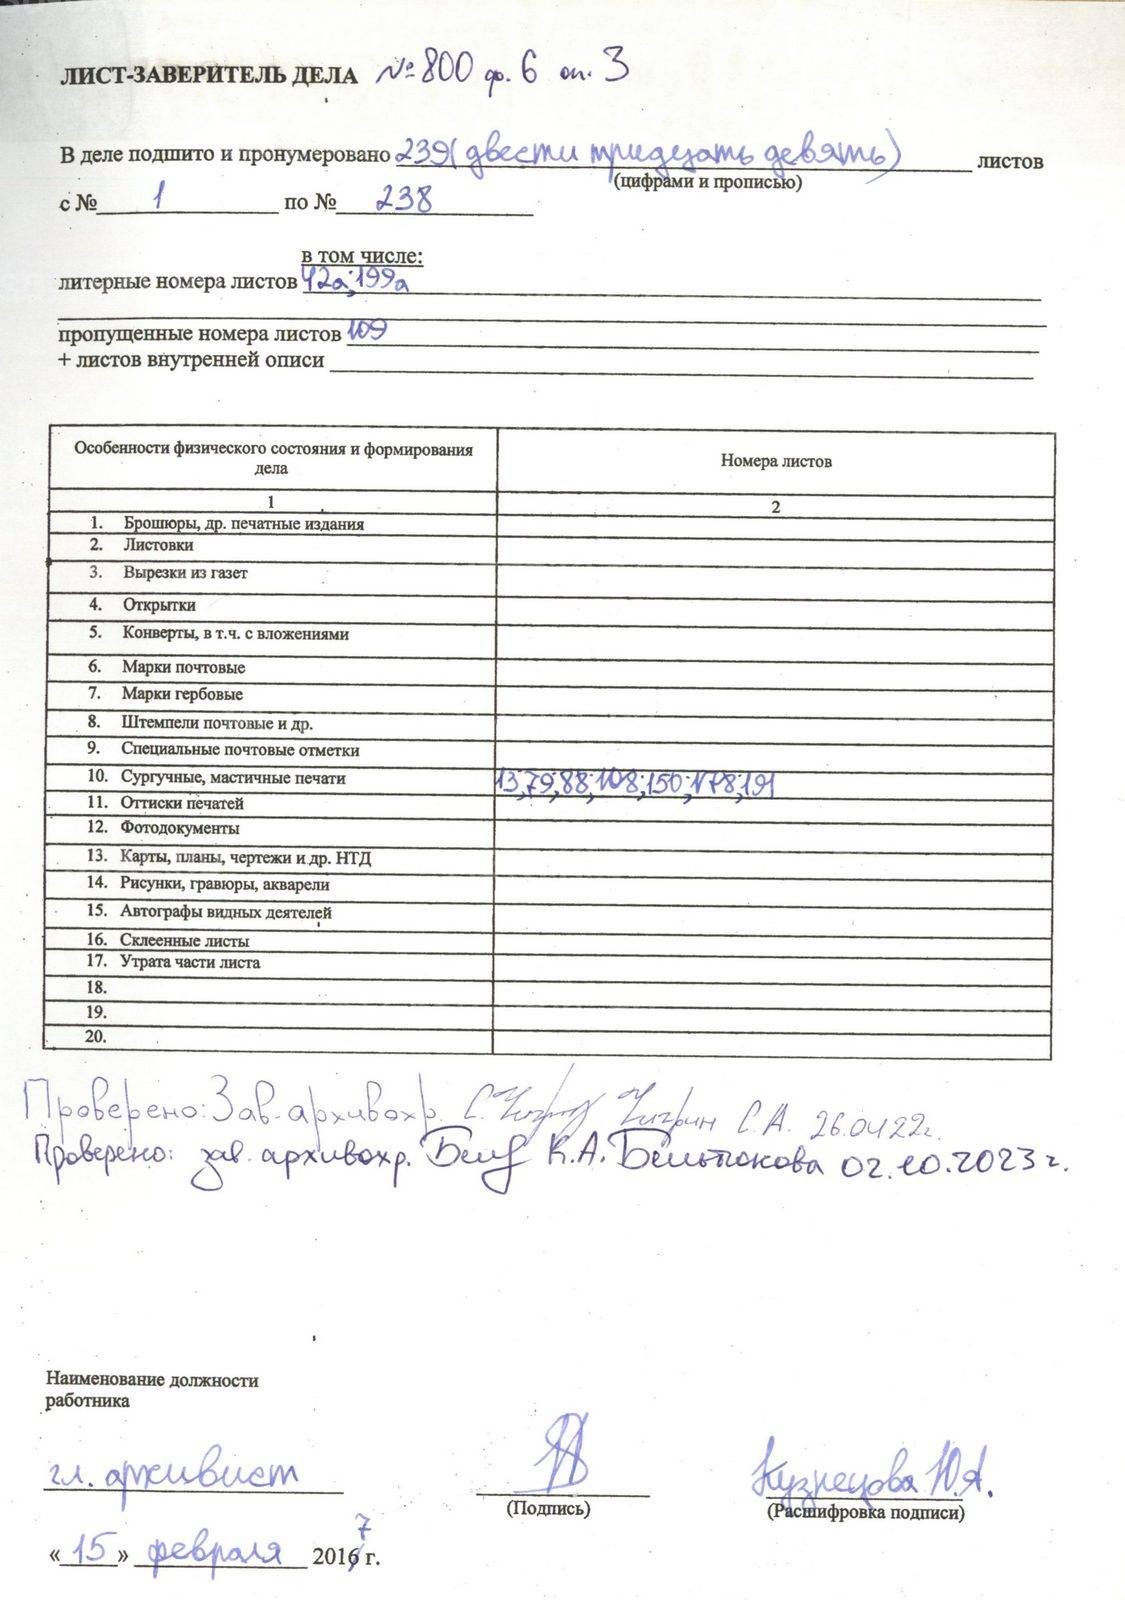 ЛИСТ-ЗАВЕРИТЕЛЬ ДЕЛА № 800 ф. 6 оп. 3
В деле подшито и пронумеровано 239 (двести тридцать девять) листов
(цифрами и прописью)
с № 1 по № 238
в том числе:
литерные номера листов 42а; 199а
пропущенные номера листов 109
+ листов внутренней описи
Особенности физического состояния и формирования дела Номера листов
1 2
1. Брошюры, др. печатные издания
2. Листовки
3. Вырезки из газет
4. Открытки
5. Конверты, в т.ч. с вложениями
6. Марки почтовые
7. Марки гербовые
8. Штемпели почтовые и др.
9. Специальные почтовые отметки
10. Сургучные, мастичные печати 13; 79; 88; 108; 150; 178; 191
11. Оттиски печатей
12. Фотодокументы
13. Карты, планы, чертежи и др. НТД
14. Рисунки, гравюры, акварели
15. Автографы видных деятелей
16. Склеенные листы
17. Утрата части листа
18.
19.
20.
Проверено: Зав. архивохр. Чигрин С.А. 26.04.22г.
Проверено: зав. архивохр. К.А. Бельтюкова 02.10.2023 г.
Наименование должности
работника
гл. архивист Кузнецова Ю.А.
(Подпись) (Расшифровка подписи)
« 15 » февраля 2017 г.